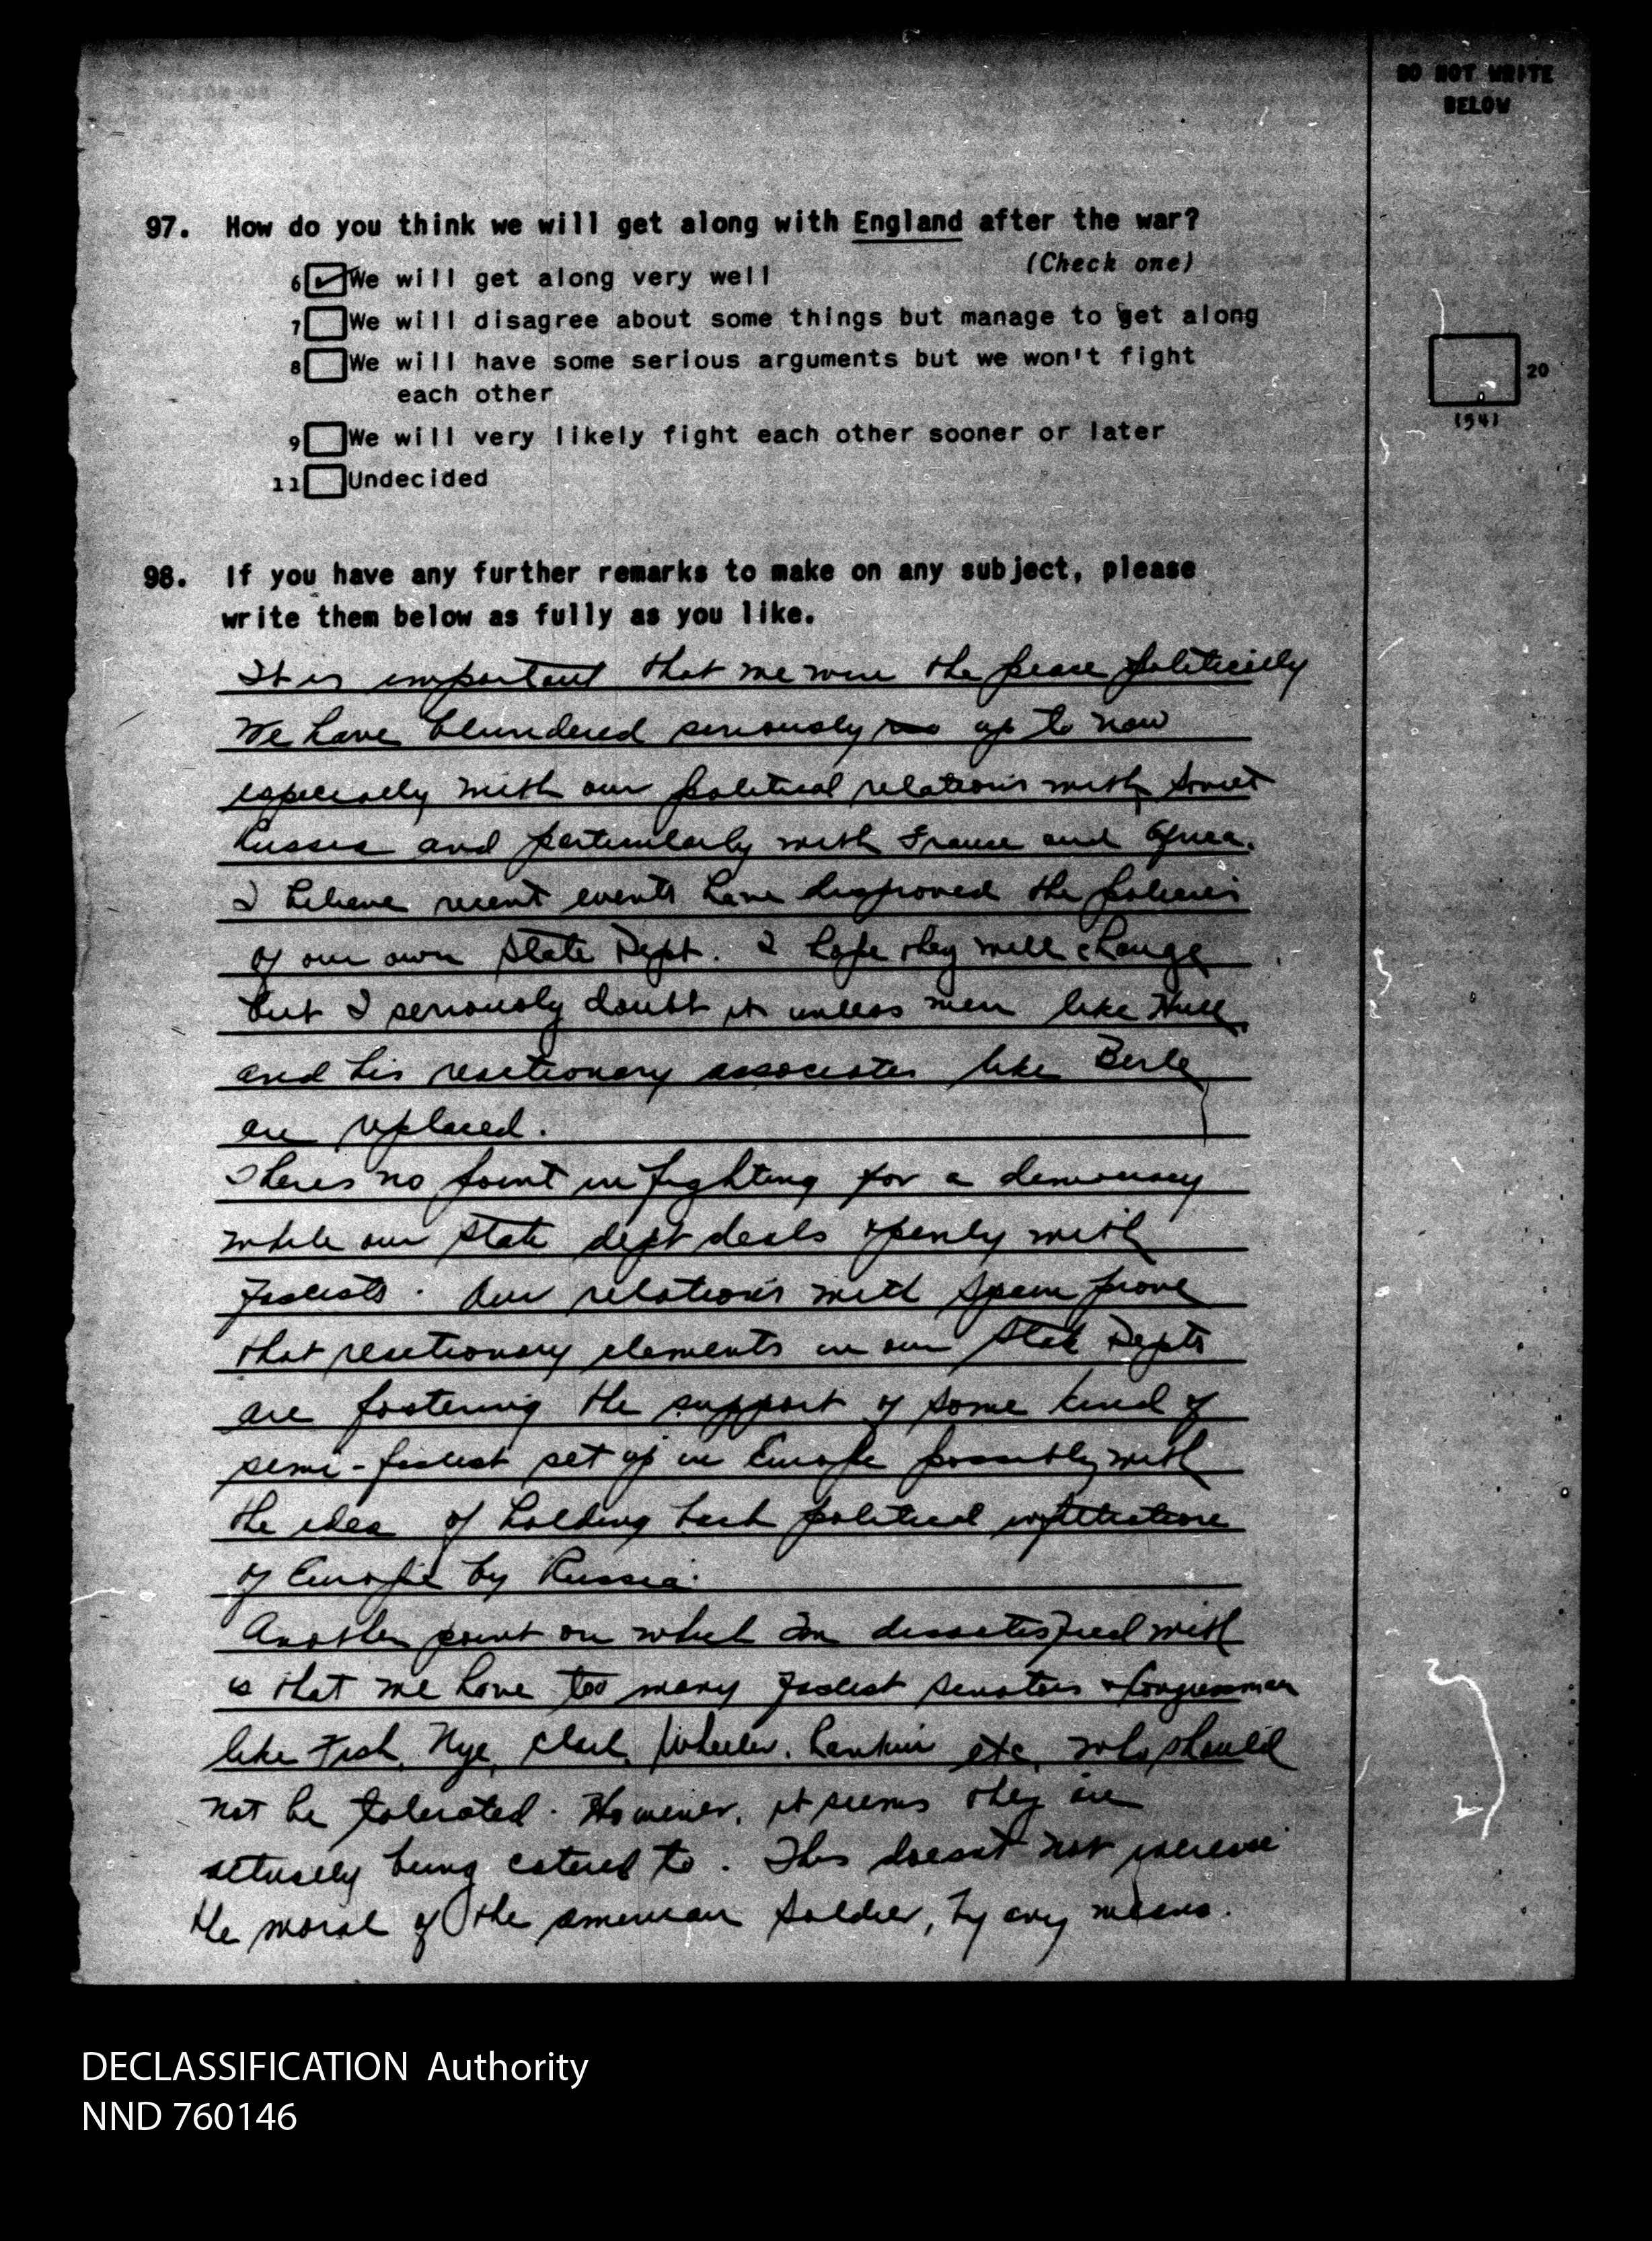 DO NOT WRITE
BELOW
97. How do you think we will get along with England after the war?
(Check one)
6 We will get along very well
7 We will disagree about some things but manage to get along
8 We will have some serious arguments but we won't fight
each other
9 We will very likely fight each other sooner or later
11 Undecided
20
(54)
98. If you have any further remarks to make on any subject, please
write them below as fully as you like.
It is important that we win the peace politically
We have blundered seriously up to now
especially with our political relations with Soviet
Russia and particularly with France and Africa.
I believe recent events have disproved the policies
of our own State Dept. I hope they will change
but I seriously doubt it unless men like Hull
and his reactionary associates like Berle
are replaced.
Theres no point in fighting for a democracy
while our State dept deals openly with
Fascists. Our relations with Spain prove
that reactionary elements in our State Depts
are fostering the support of some kind of
semi-fascist set up in Europe possibly with
the idea of holding back political
of Europe by Russia.
Another point on which Im dissatisfied with
is that we have too many Fascist Senators + Congressman
like Fish, Nye, Clark, Wheeler, Rankin etc, who should
not be tolerated. However, it seems they are
actually being catered to. This doesnt not increase
the moral of the American Soldier, by any means.
DECLASSIFICATION Authority
NND 760146